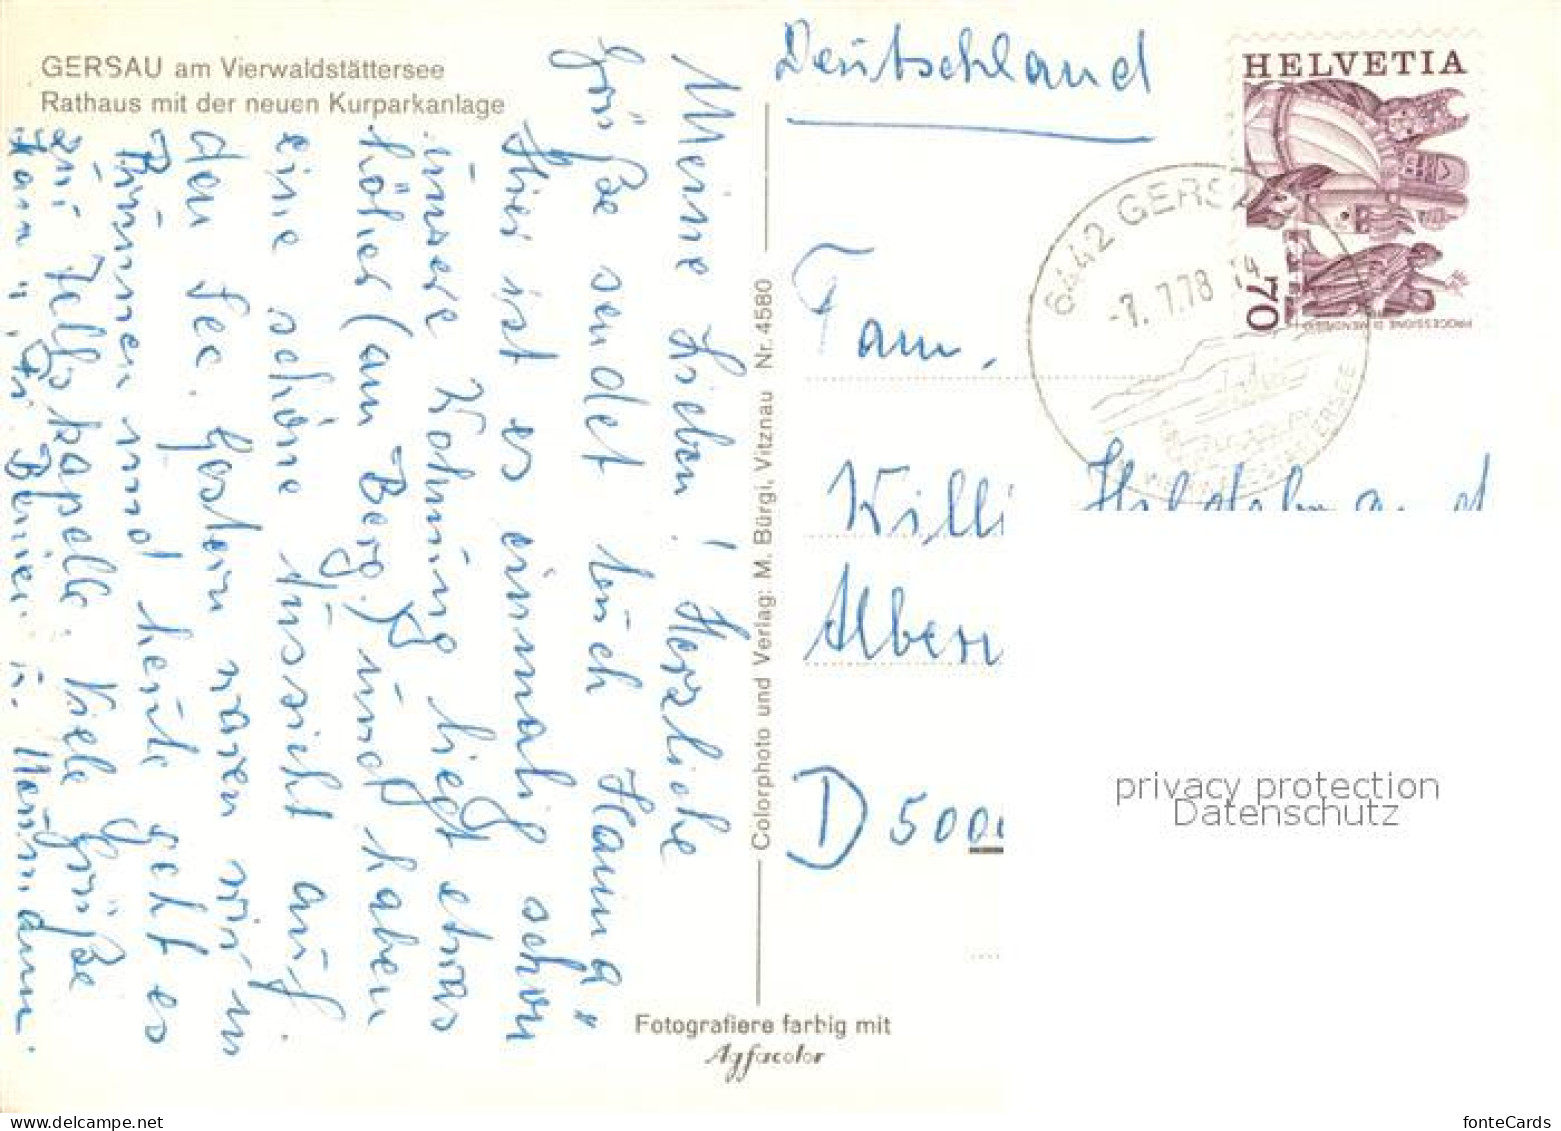 GERSAU am Vierwaldstättersee
Rathaus mit der neuen Kurparkanlage
Meine Lieben! Herzliche
Grüße sendet Euch Hanna"
Hier ist es einmalig schön
unsere Wohnung liegt etwas
höher (am Berg.) und haben
eine schöne Aussicht auf.
den See. Gestern waren wir in
Brunnen und heute geht es
zur Tellskapelle. Viele Grüße
u. Normann.
Colorphoto und Verlag: M. Bürgi, Vitznau Nr. 4580
Fotografiere farbig mit
Agfacolor
Deutschland
HELVETIA
70
PROCESSIONE DI MENDRISIO
6442 GERSAU
-7. 7.78 14
VIERWALDSTÄTTERSEE
Fam.
Willi Hildebrand
D 500
privacy protection
Datenschutz
fonteCards